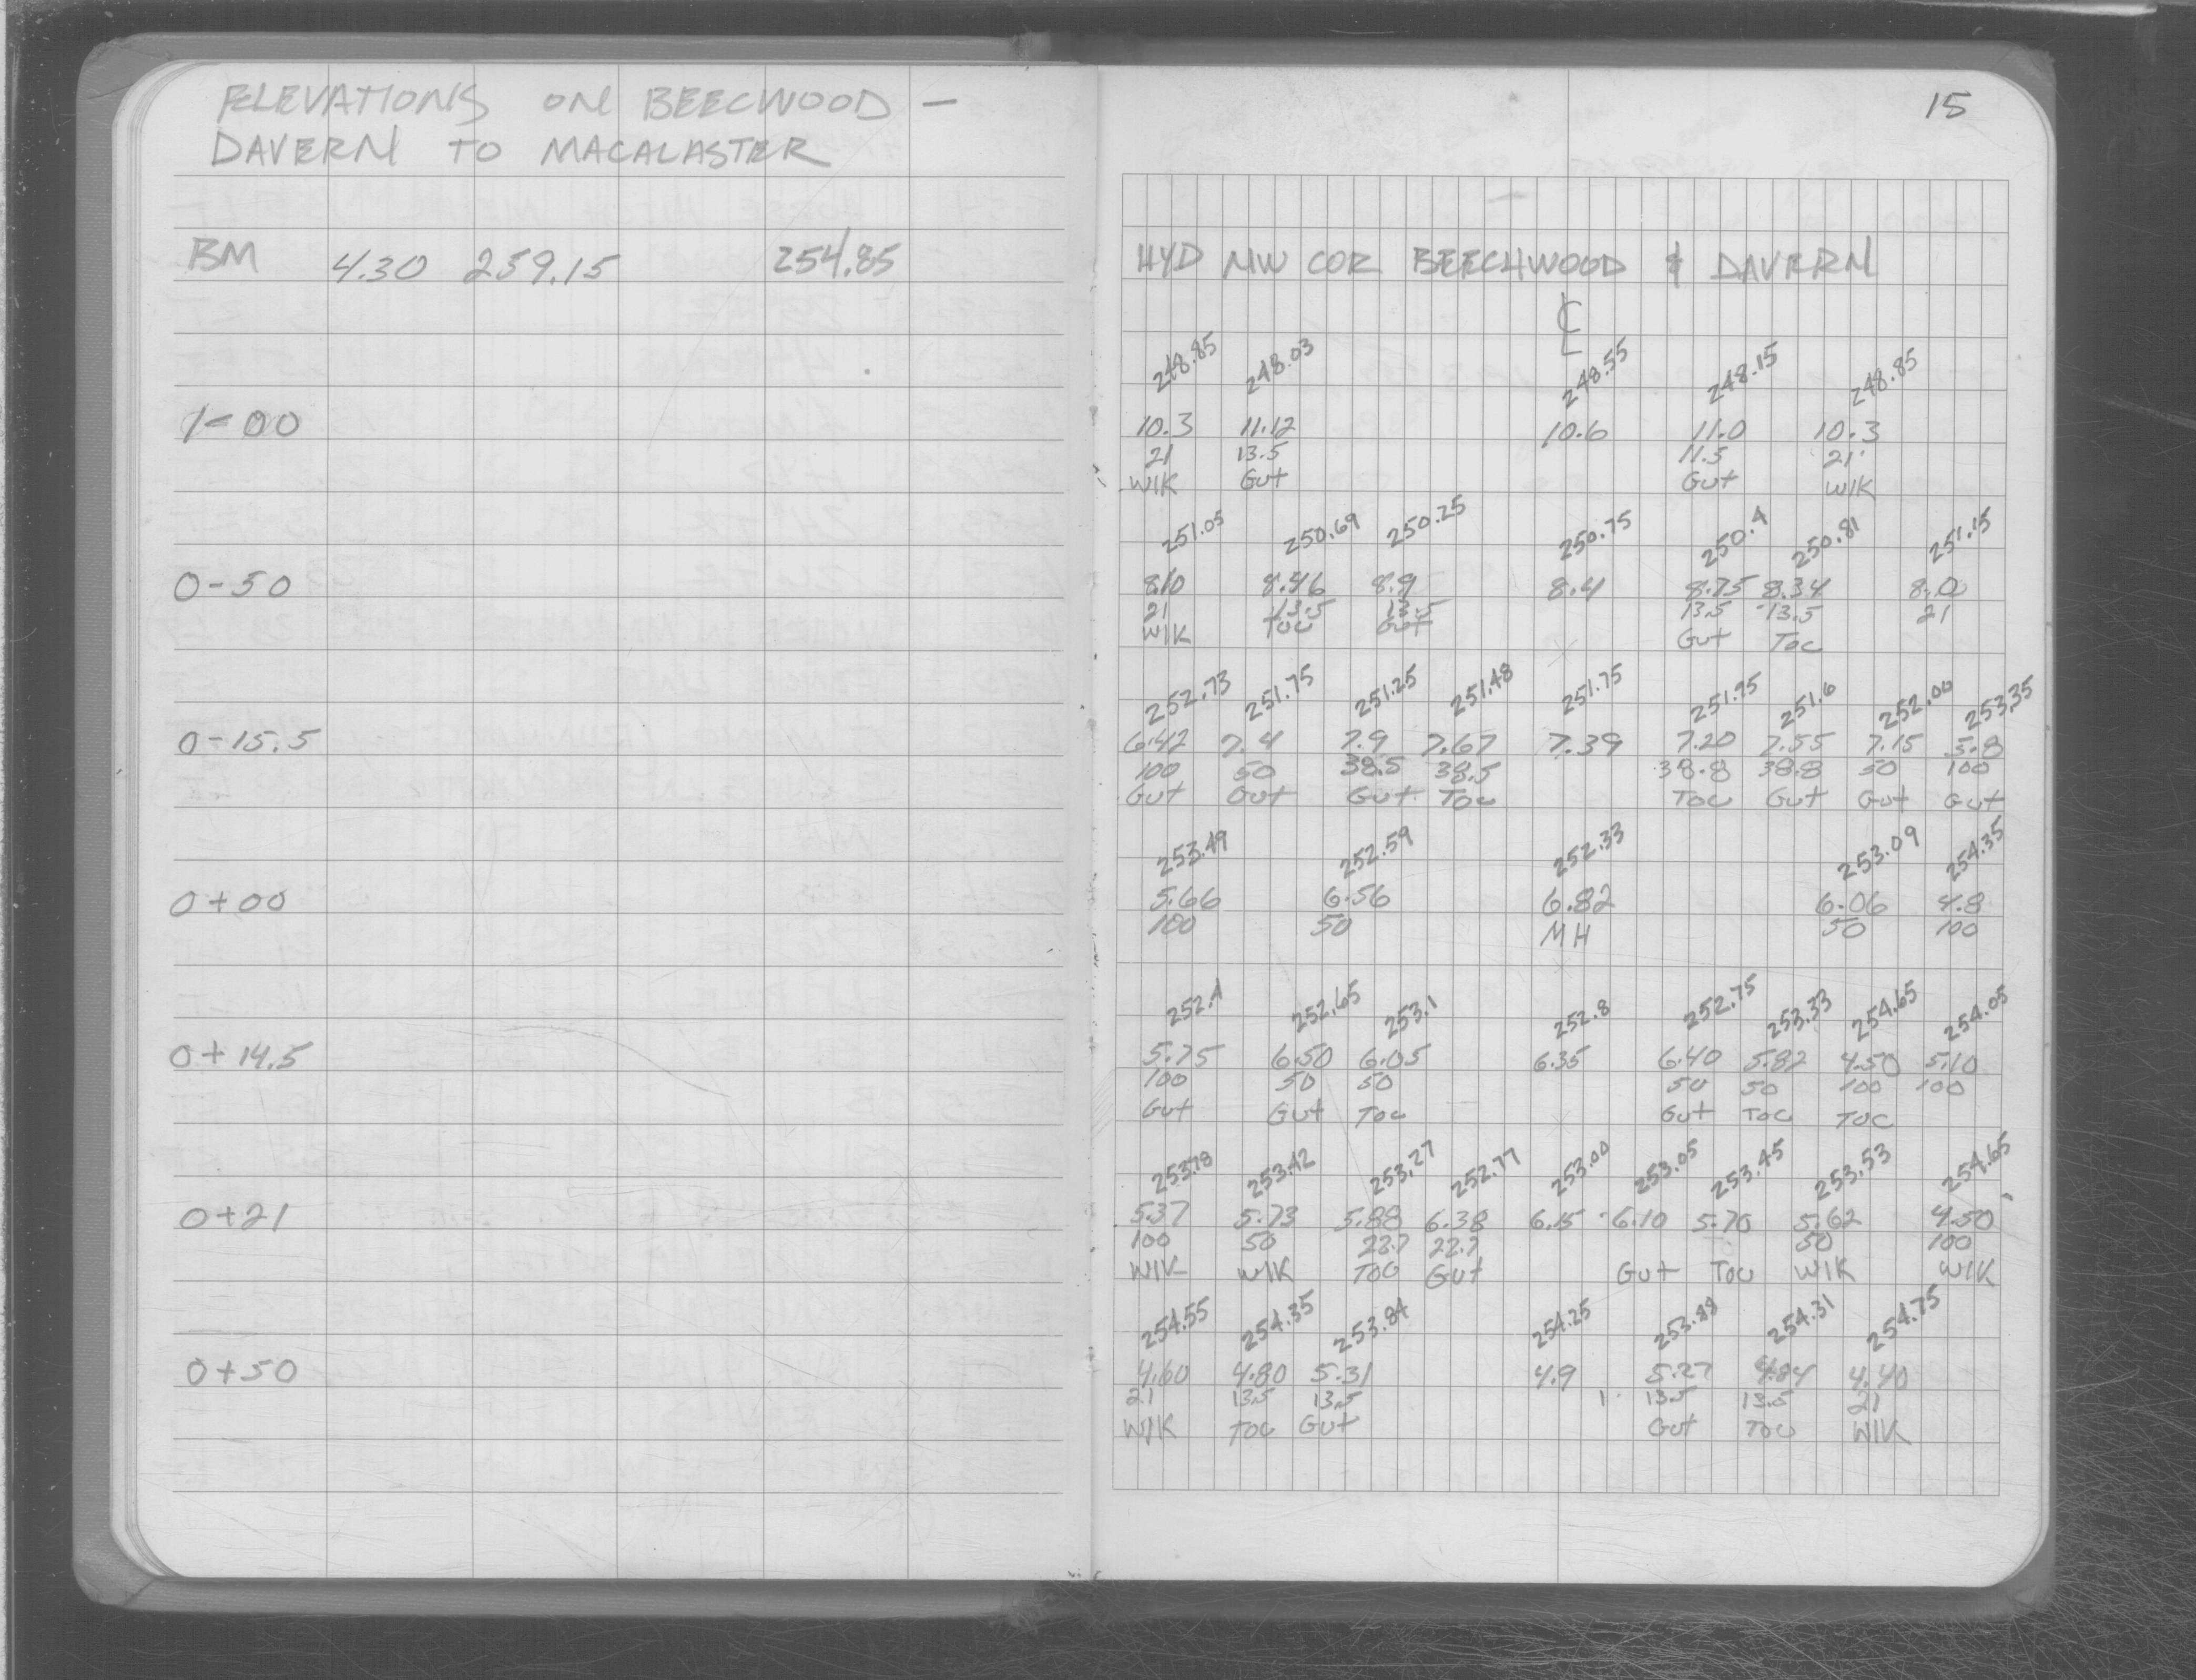 ELEVATIONS ON BEECWOOD -
DAVERN TO MACALASTER
15
BM 4.30 259.15 254.85 HYD NW COR BEECHWOOD & DAVERN
℄
248.85 248.03 248.55 248.15 248.85
1-00 10.3 11.12 10.6 11.0 10.3
21 13.5 11.5 21'
WIK Gut Gut WIK
251.05 250.69 250.25 250.75 250.4 250.81 251.15
0-50 8.10 8.46 8.9 8.4 8.75 8.34 8.0
21 13.5 13.5 13.5 13.5 21
WIK TOC Gut Gut TOC
252.73 251.75 251.25 251.48 251.75 251.95 251.6 252.00 253.35
0-15.5 6.42 7.4 7.9 7.67 7.39 7.20 7.55 7.15 5.8
100 50 38.5 38.5 38.8 38.8 50 100
Gut Gut Gut TOC TOC Gut Gut Gut
253.49 252.59 252.33 253.09 254.35
0+00 5.66 6.56 6.82 6.06 4.8
100 50 MH 50 100
252.4 252.65 253.1 252.8 252.75 253.33 254.65 254.05
0+14.5 5.75 6.50 6.05 6.35 6.40 5.82 4.50 5.10
100 50 50 50 50 100 100
Gut Gut TOC Gut TOC TOC
253.78 253.42 253.27 252.77 253.00 253.05 253.45 253.53 254.65
0+21 5.37 5.73 5.88 6.38 6.15 6.10 5.70 5.62 4.50
100 50 22.7 22.7 50 100
WIK WIK TOC Gut Gut TOC WIK WIK
254.55 254.35 253.84 254.25 253.88 254.31 254.75
0+50 4.60 4.80 5.31 4.9 5.27 4.84 4.40
21 13.5 13.5 13.5 13.5 21
WIK TOC Gut Gut TOC WIK